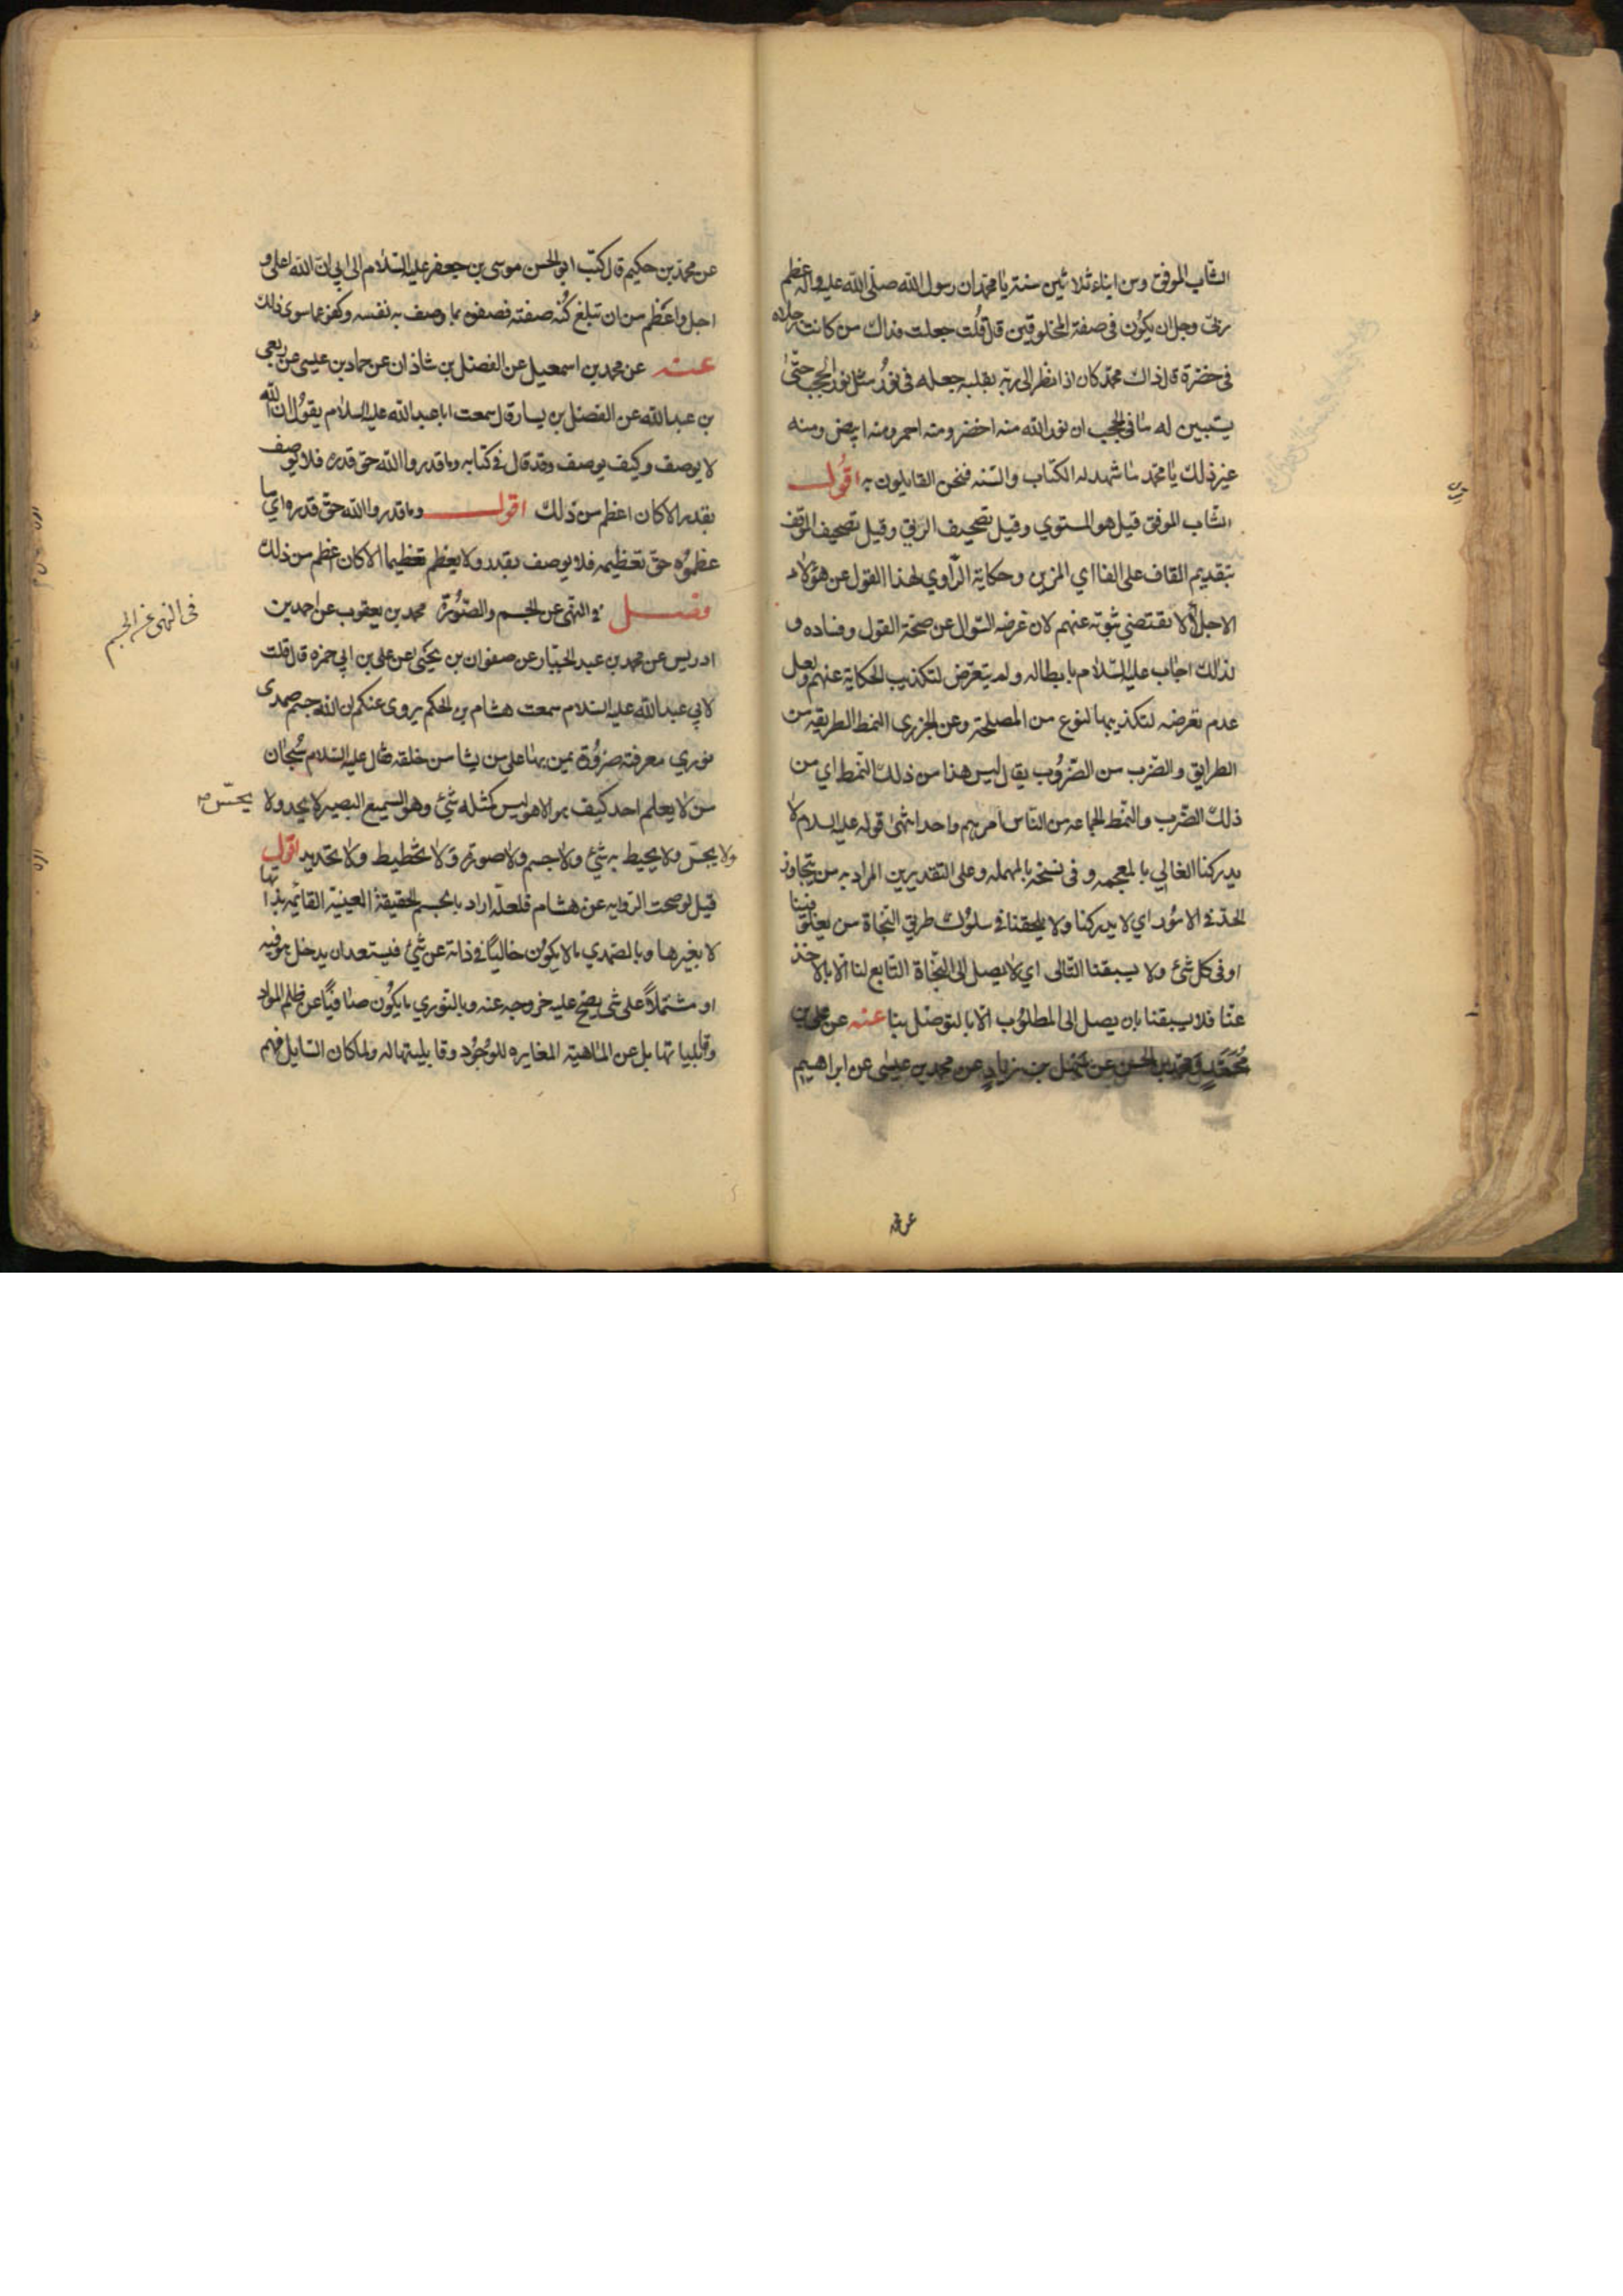 الشاب الموفق ومن ابناء ثلاثين سنة يا محمد ان رسول الله صلى الله عليه واله عظم
ربى وجل ان يكون فى صفة المخلوقين قال قلت جعلت فداك من كانت رجلاه
فى خضرة قال ذاك محمد كان اذا نظر الى ربه بقلبه جعله فى نور مثل نور الحجب حتى
يستبين له ما فى الحجب ان نور الله منه اخضر ومنه احمر ومنه ابيض ومنه
غير ذلك يا محمد ما شهد له الكتاب والسنه فنحن القايلون به اقول
الشاب الموفق قيل هو المستوي وقيل تصحيف الريق وقيل تصحيف الموقف
بتقديم القاف على الفا اي المزين وحكاية الراوي لهذا القول عن هؤلاء
الاجلاء لا يقتضي ثبوته عنهم لان غرضه السوال عن صحة القول وفساده و
لذلك اجاب عليه السلام بابطاله ولم يتعرض لتكذيب الحكاية عنهم ولعل
عدم تعرضه لتكذيبها لنوع من المصلحة وعن الجزرى النمط الطريقه من
الطرايق والضرب من الضروب يقال ليس هذا من ذلك النمط اي من
ذلك الضرب والنمط الجماعه من الناس امرهم واحد انتهى قوله عليه السلام لا
يدركنا الغالي بالمعجمه و فى نسخة بالمهمله وعلى التقديرين المراد به من يتجاوز
الحد فى الامور اي لا يدركنا ولا يلحقنا فى سلوك طريق النجاة من يغلو فينا
او فى كل شئ ولا يسبقنا التالى اي لا يصل الى النجاة التابع لنا الا بالاخذ
عنا فلا يسبقنا بان يصل الى المطلوب الا بالتوصل بنا عنه عن على بن
محمد ومحمد بن الحسن عن سهل بن زياد عن محمد بن عيسى عن ابراهيم
عن محمد
عن محمد بن حكيم قال كتب ابو الحسن موسى بن جعفر عليه السلام الى ابي ان الله اعلى و
اجل واعظم من ان تبلغ كنه صفته فصفوه بما وصف به نفسه وكفوا عما سوى ذلك
عنه عن محمد بن اسمعيل عن الفضل بن شاذان عن حماد بن عيسى عن ربعى
بن عبد الله عن الفضل بن يسار قال سمعت ابا عبد الله عليه السلام يقول ان الله
لا يوصف وكيف يوصف وقد قال فى كتابه وما قدروا الله حق قدره فلا يوصف
بقدر الا كان اعظم من ذلك اقول وما قدروا الله حق قدره اي ما
عظموه حق تعظيمه فلا يوصف بقدر ولا يعظم تعظيما الا كان اعظم من ذلك
فصل فى النهى عن الجسم والصورة محمد بن يعقوب عن احمد بن
فى النهى عن الجسم
ادريس عن محمد بن عبد الجبار عن صفوان بن يحيى عن على بن ابي حمزه قال قلت
لابي عبد الله عليه السلام سمعت هشام بن الحكم يروى عنكم ان الله جسم صمدى
نوري معرفته ضرورة يمن بها على من يشا من خلقه فقال عليه السلام سبحان
من لا يعلم احد كيف هو الا هو ليس كمثله شئ وهو السميع البصير لا يحد ولا
يحس
ولا يجس ولا يحيط به شئ ولا جسم ولا صورة ولا تخطيط ولا تحديد اقول
قيل لو صحت الروايه عن هشام فلعله اراد بالجسم الحقيقة العينية القائمه بذاتها
لا بغيرها وبالصمدي ما لا يكون خاليا فى ذاته عن شئ فيستعد ان يدخل هو فيه
او مشتملا على شى يصح عليه خروجه عنه وبالنوري ما يكون صافيا عن ظلم المواد
وقابلياتها بل عن الماهية المغايره للوجود وقابليتها له ولما كان السايل فهم